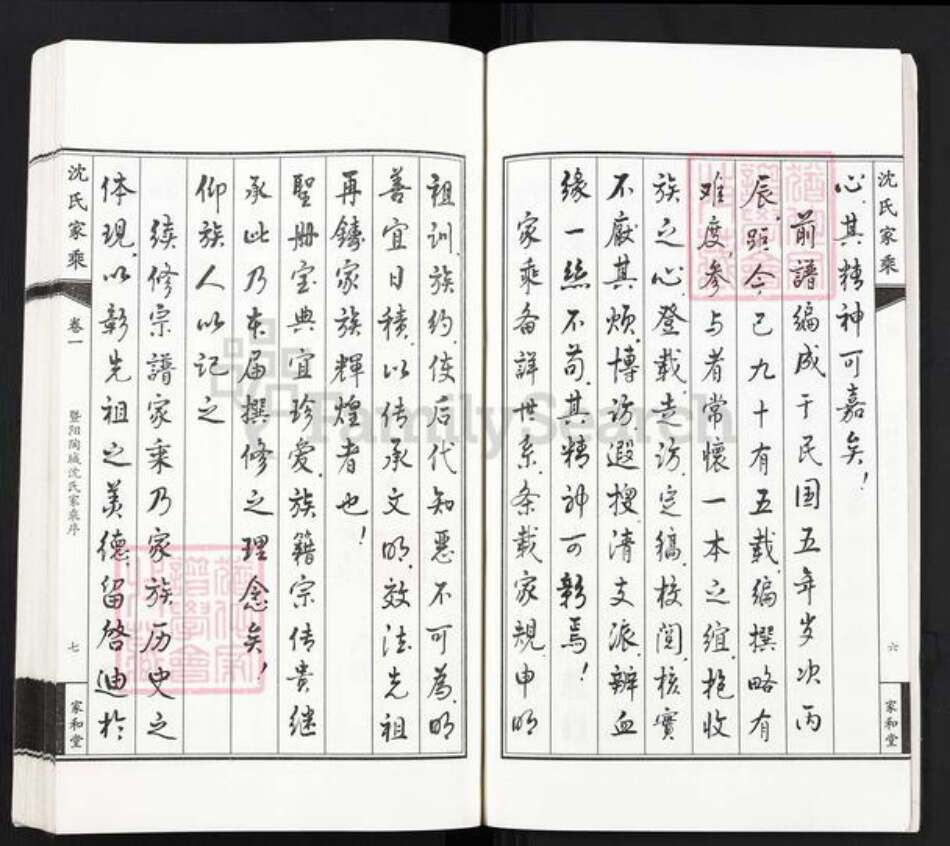 沈氏家乘
六
家和堂
心，其精神可嘉矣！
前譜编成于民国五年岁次丙
辰，距今已九十有五载，编撰略有
难度，参与者常懷一本之谊，抱收
族之心，登载走访，定稿校阅，核實
不厭其烦，博访遐搜，清支派，辩血
缘，一絲不苟，其精神可彰焉！
家乘备詳世系，条载家规，申明
祖訓、族约，使后代知惡不可為，明
善宜日積，以传承文明，效法先祖，
再鑄家族輝煌者也！
聖册宝典宜珍爱，族籍宗传貴继
承，此乃本届撰修之理念矣！
仰族人以记之
续修宗譜家乘乃家族历史之
体现，以彰先祖之美德，留啓迪於
沈氏家乘
卷一
暨阳陶城沈氏家乘序
七
家和堂
FamilySearch